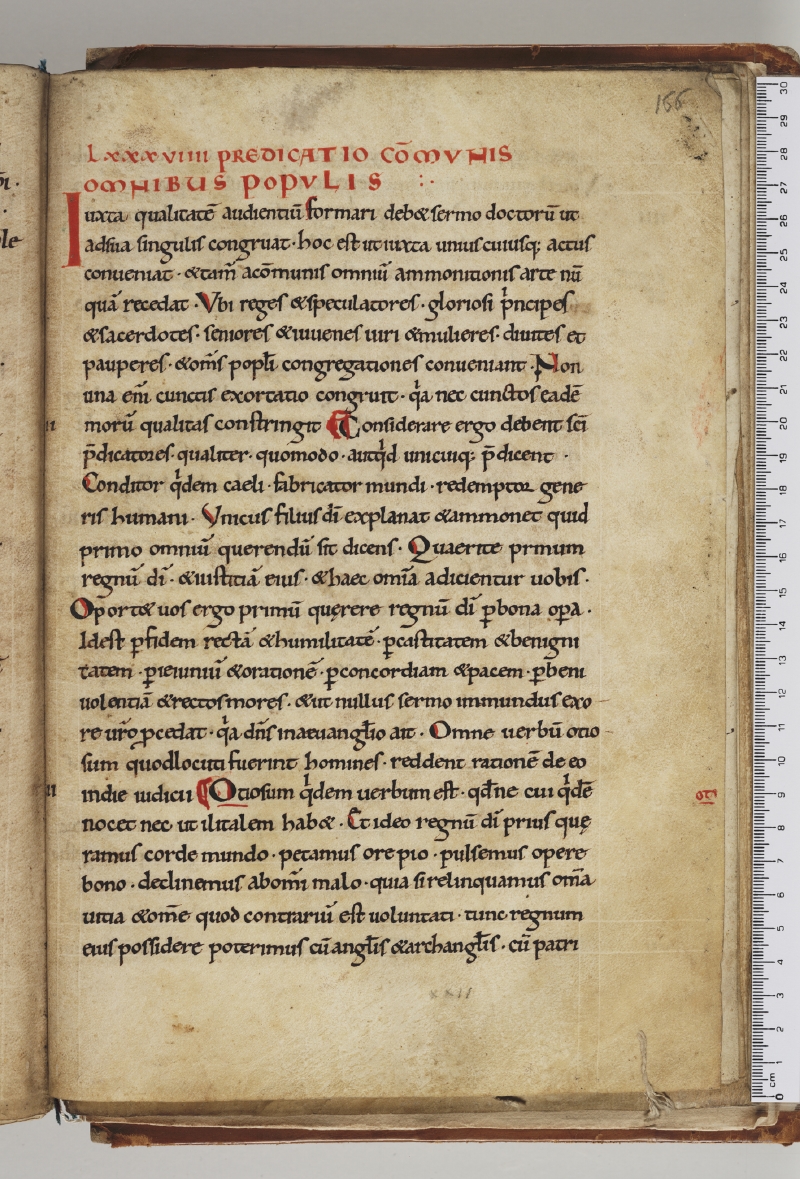 155
Lxxxviiii PREDICATIO CŌMVNIS
OMNIBUS POPVLIS :·
Iuxta qualitatē audientiū formari deb& sermo doctorū ut
ad sua singulis congruat · hoc est ut iuxta unius cuiusq; actus
conueniat · & tam̄ a cōmunis omniū ammonitionis arte nū
quā recedat · Vbi reges & speculatores · gloriosi p̍ncipes
& sacerdotes · seniores & iuuenes uiri & mulieres · diuites et
pauperes · & om̄s popl̄i congregationes conueniant · Non
una eni̅ cunctis exortatio congruit · q̍a nec cunctos eadē
morū qualitas constringit Considerare ergo debent sc̄i
p̄dicatores · qualiter · quomodo · aut q̍d unicuiq; p̄dicent ·
Conditor q̍dem caeli · fabricator mundi · redemptor gene
ris humani · Vnicus filius dī explanat & ammonet quid
primo omniū querendū sit dicens · Quaerite primum
regnū dī · & iustitiā eius · & haec om̄ia adicientur uobis ·
Oport& uos ergo primū quęrere regnū dī ꝑ bona oꝑa ·
Id est ꝑ fidem rectā & humilitatē · ꝑ castitatem & benigni
tatem · ꝑ ieiuniū & orationē · ꝑ concordiam & pacem · ꝑ beni
uolentiā & rectos mores · & ut nullus sermo immundus exo
re ur̄o ꝓcedat · q̍a dn̄s in aeuangl̄io ait · Omne uerbū otio
sum quod locuti fuerint homines · reddent rationē de eo
in die iudicii Otiosum q̍dem uerbum est · qd̄ ne cui q̍dē
nocet nec utilitalem hab& · Et ideo regnū dī prius quę
ramus corde mundo · petamus ore pio · pulsemus opere
bono · declinemus ab om̄i malo · quia si relinquamus om̄a
uitia & om̄e quod contrariū est uoluntati · tunc regnum
eius possidere poterimus cū angl̄is & archangl̄is · cū patri
xxii